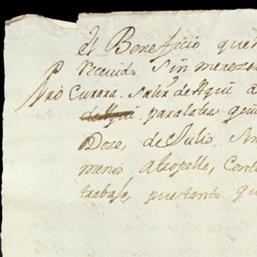 el Beneficio que
recevido Sin mereze
Pro Curara Salir de Aqui a
de Aqui para latre
Doze, de Julio
menos atropello, Cont
trabajo, por tanto q